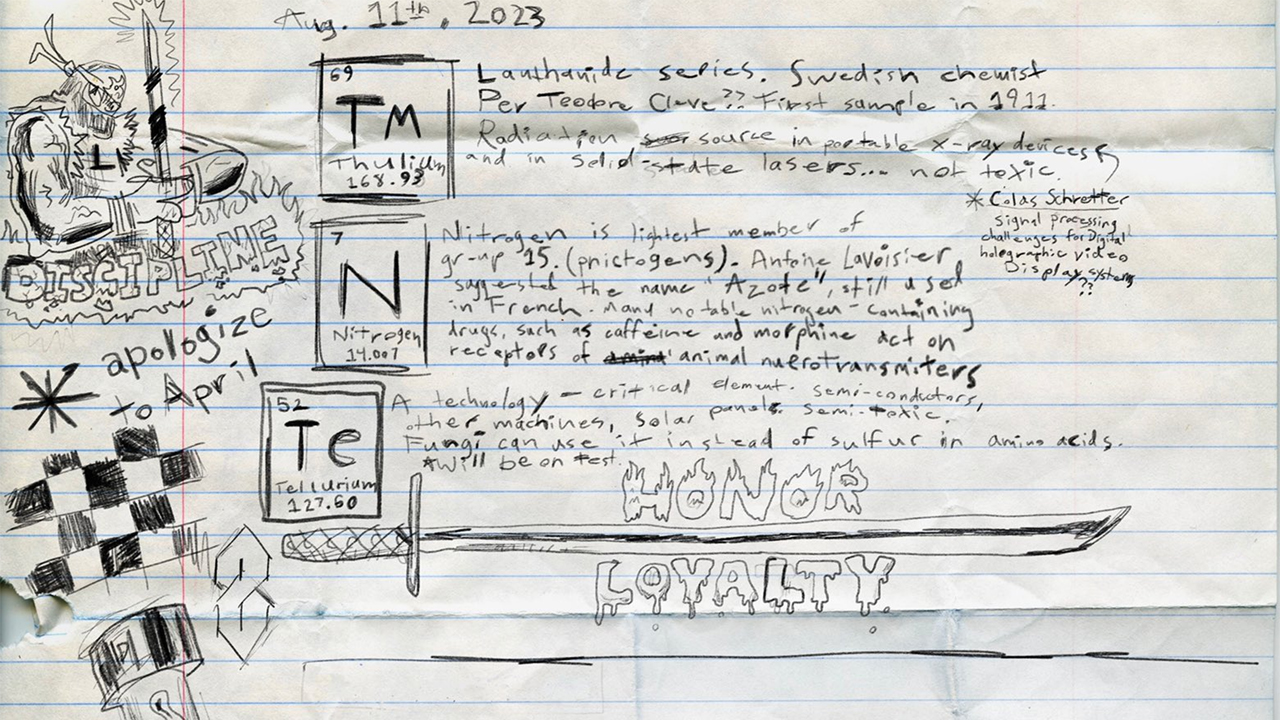 Aug. 11th, 2023
69
Tm
Thulium
168.93
Lanthanide series. Swedish chemist
Per Teodore Cleve?? First sample in 1911.
Radiation source in portable x-ray devices
and in solid-state lasers... not toxic.
* Colas Schretter
signal processing
challenges for Digital
holographic video
Display systems
??
L
DISCIPLINE
* apologize
to April
7
N
Nitrogen
14.007
Nitrogen is lightest member of
group 15. (pnictogens). Antoine Lavoisier
suggested the name "Azote", still used
in French. Many notable nitrogen-containing
drugs, such as caffeine and morphine act on
receptors of animal nuerotransmiters
52
Te
Tellurium
127.60
A technology-critical element. semi-conductors,
other machines, solar panels. semi-toxic.
Fungi can use it instead of sulfur in amino acids.
*Will be on test.
HONOR
LOYALTY